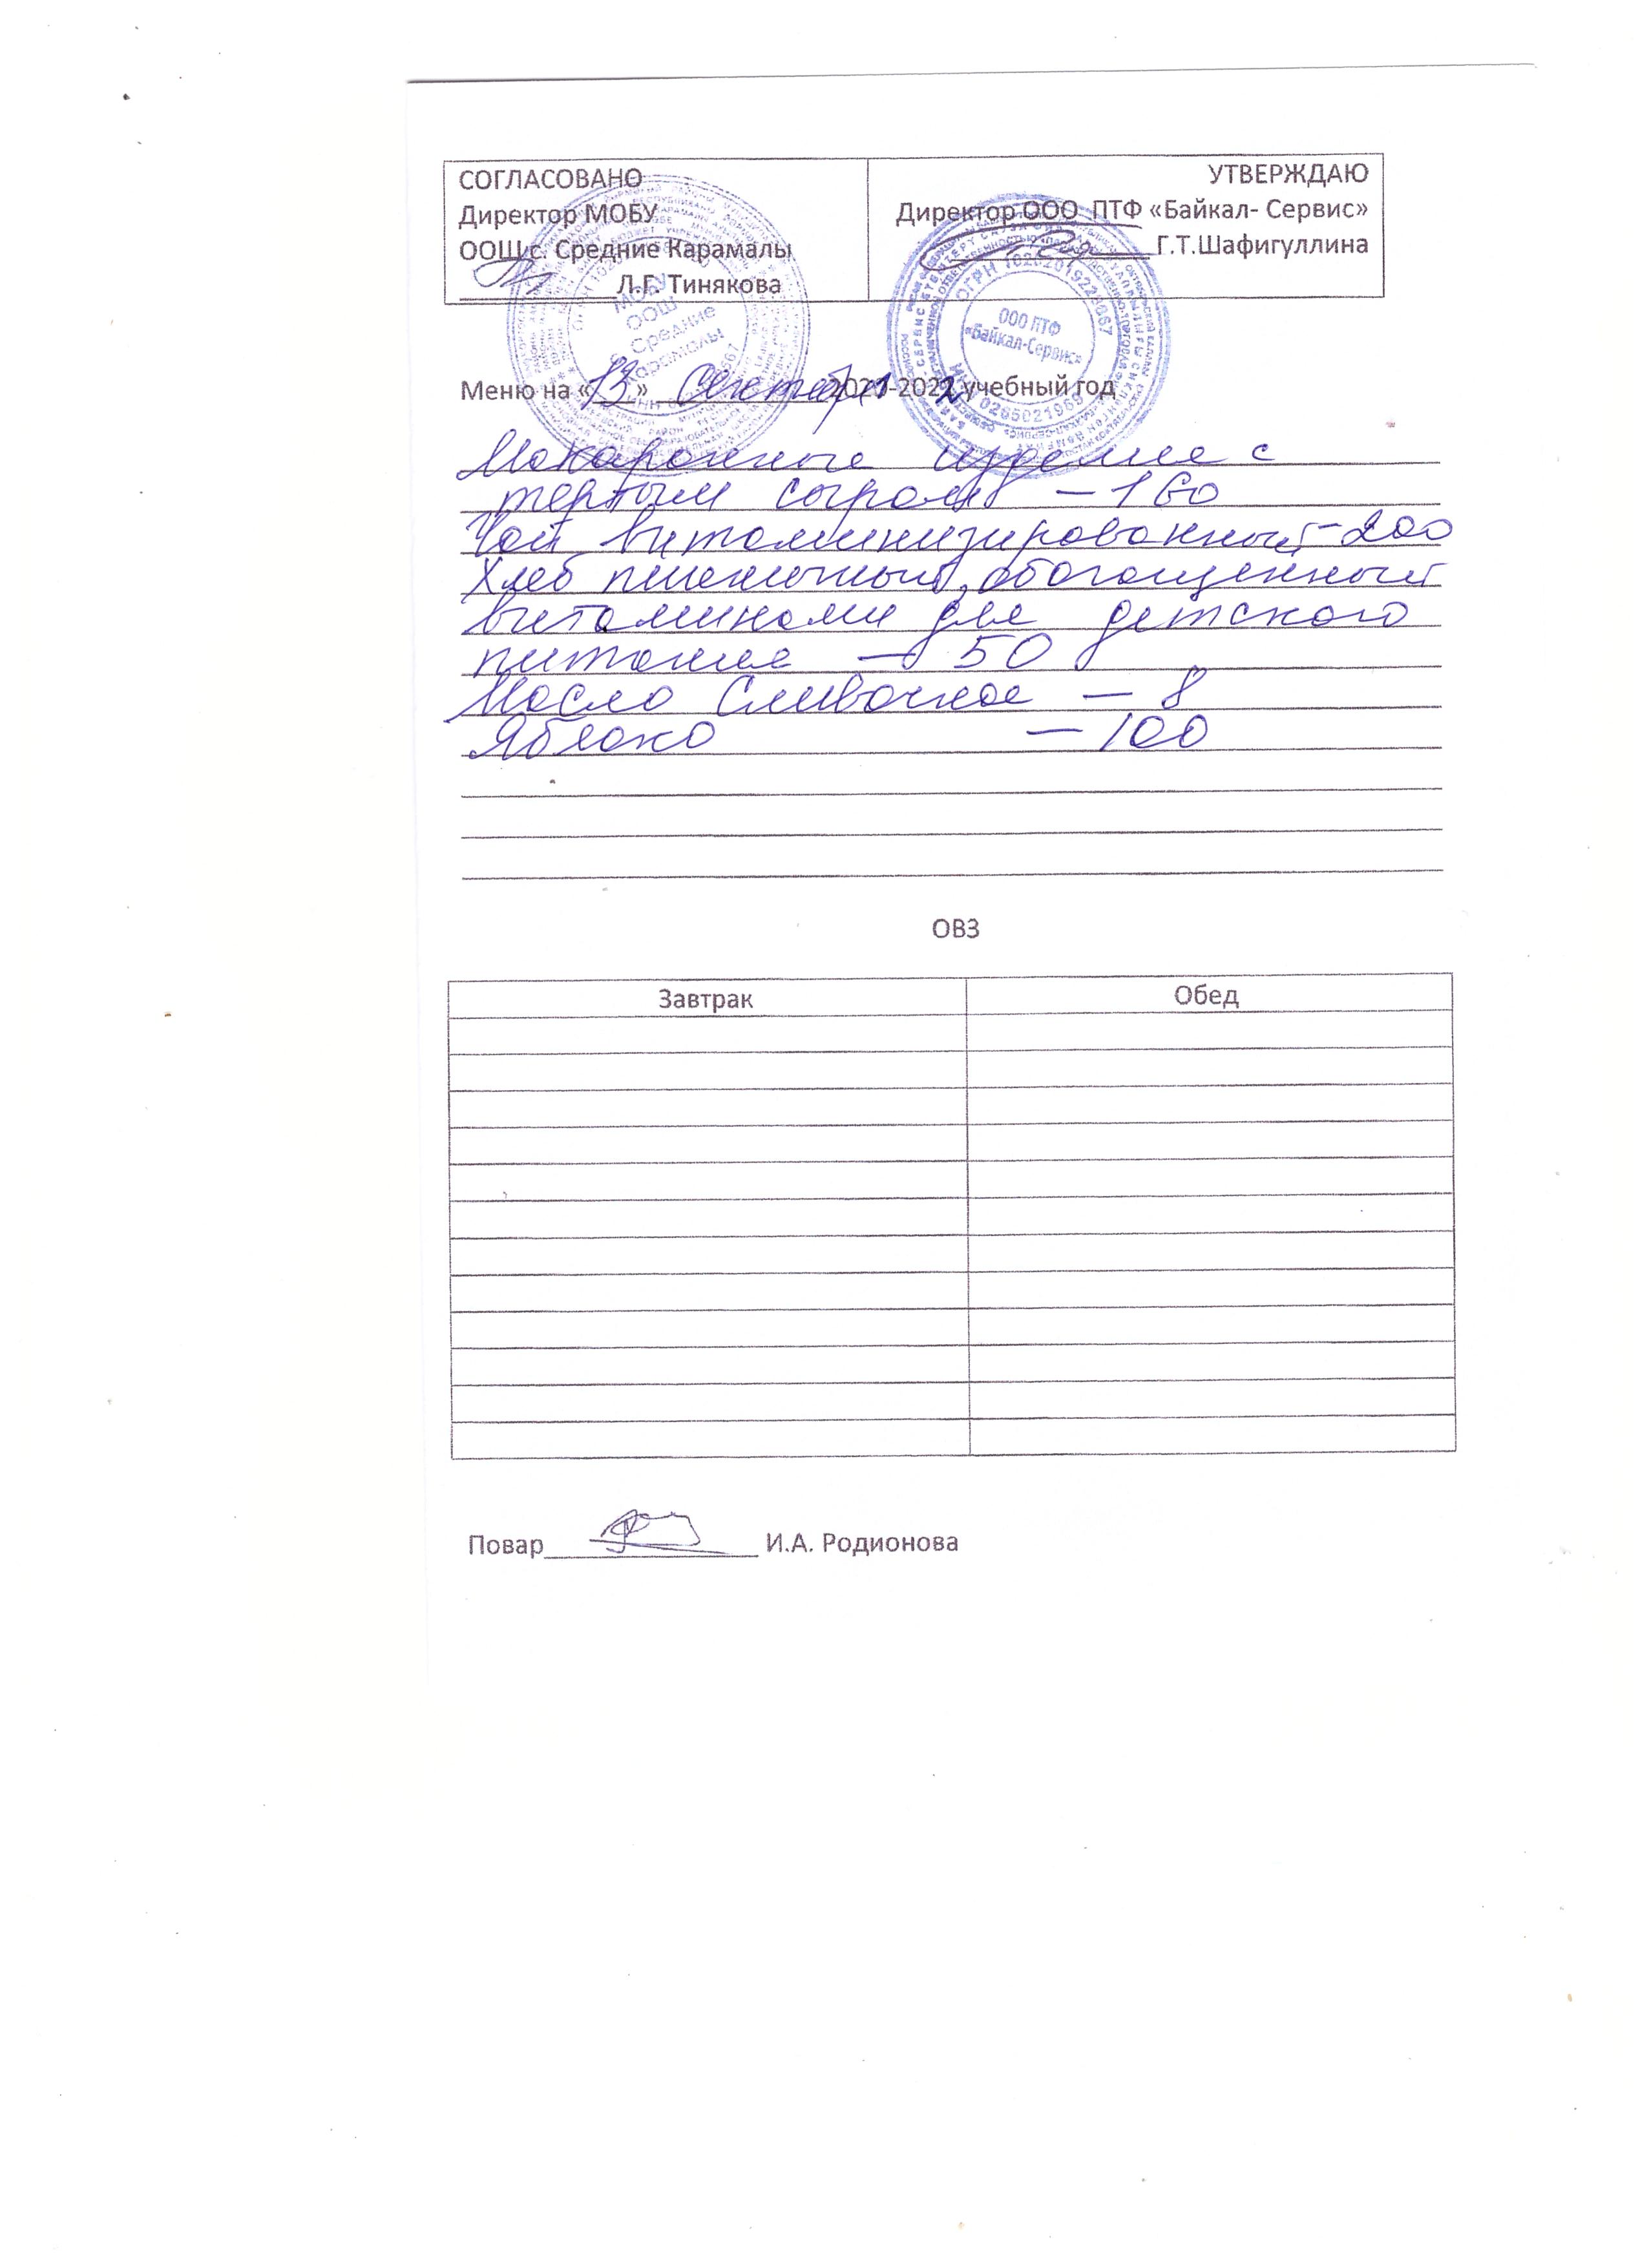 СОГЛАСОВАНО
Директор МОБУ
ООШ с. Средние Карамалы
Л.Г. Тинякова
УТВЕРЖДАЮ
Директор ООО ПТФ «Байкал- Сервис»
Г.Т.Шафигуллина
МОБУ
ООШ
с. Средние
Карамалы
ООО ПТФ
«Байкал-Сервис»
Меню на «13» Сентября 2021-2022 учебный год
Макаронные изделие с
тертым сыром – 160
Чай витаминизированный – 200
Хлеб пшеничный, обогащенный
витаминами для детского
питания – 50
Масло Сливочное – 8
Яблоко – 100
ОВЗ
Завтрак
Обед
Повар И.А. Родионова